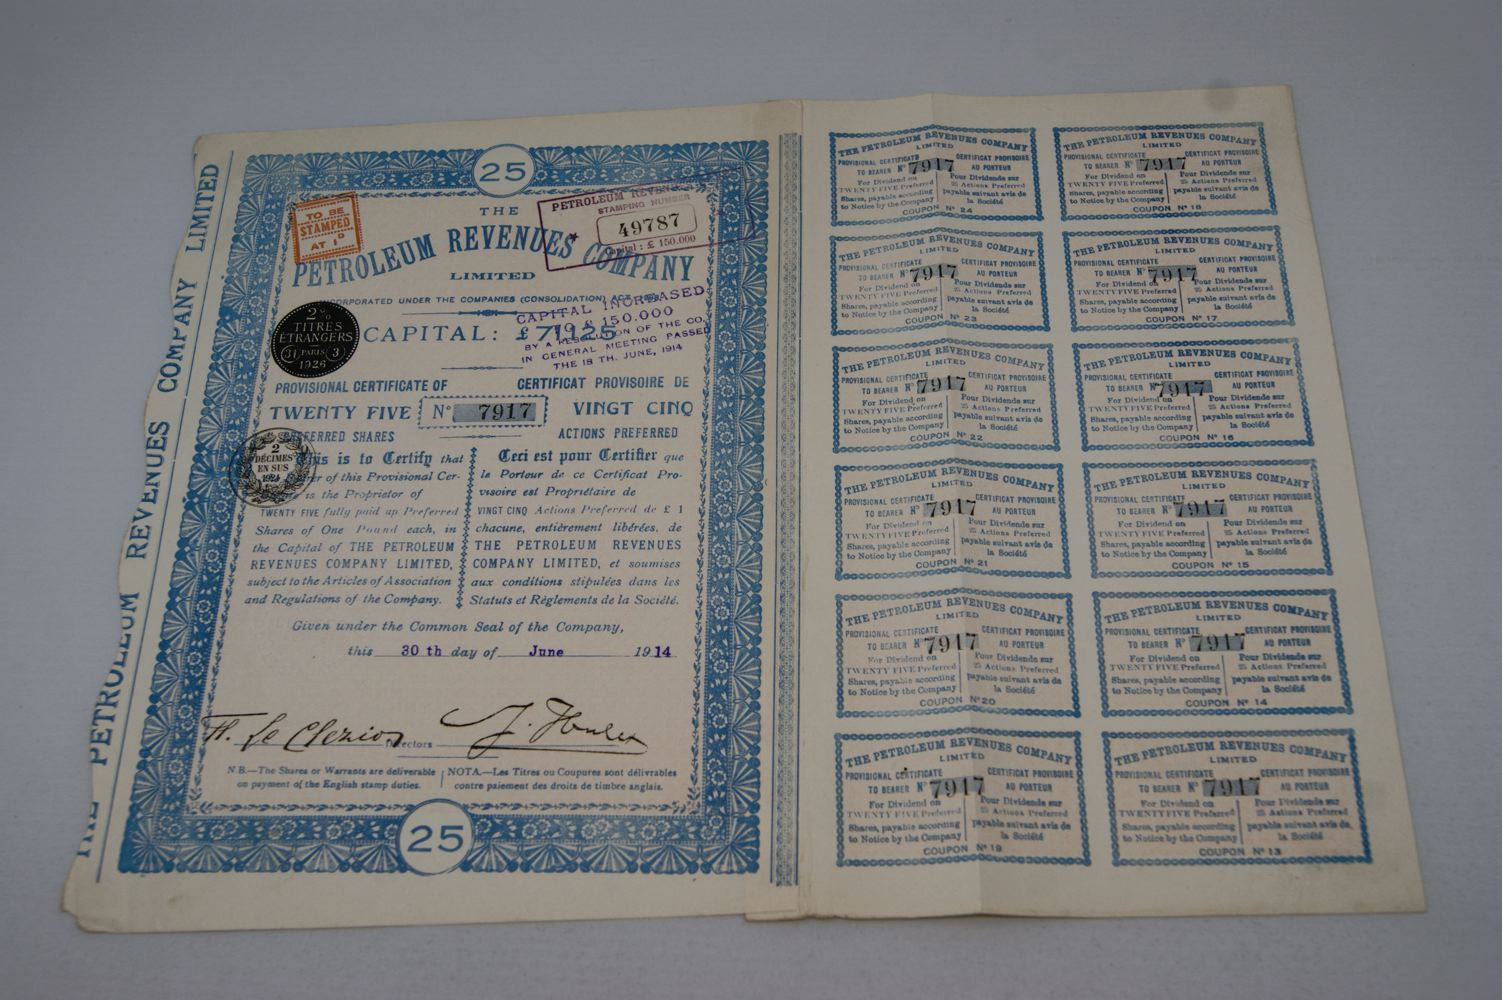 THE PETROLEUM REVENUES COMPANY LIMITED
25
TO BE
STAMPED
AT 1D
PETROLEUM REVENUES
STAMPING NUMBER
49787
Capital : £ 150.000
THE
PETROLEUM REVENUES COMPANY
LIMITED
INCORPORATED UNDER THE COMPANIES (CONSOLIDATION)
CAPITAL INCREASED
TO £ 150.000
BY A RESOLUTION OF THE CO.
IN GENERAL MEETING PASSED
THE 18 TH. JUNE, 1914
2%
TITRES
ETRANGERS
31 PARIS 3
1926
CAPITAL:
PROVISIONAL CERTIFICATE OF
TWENTY FIVE
PREFERRED SHARES
No 7917
CERTIFICAT PROVISOIRE DE
VINGT CINQ
ACTIONS PREFERRED
2
DÉCIMES
EN SUS
1924
This is to Certify that
bearer of this Provisional Cer-
is the Proprietor of
TWENTY FIVE fully paid up Preferred
Shares of One Pound each, in
the Capital of THE PETROLEUM
REVENUES COMPANY LIMITED,
subject to the Articles of Association
and Regulations of the Company.
Ceci est pour Certifier que
le Porteur de ce Certificat Pro-
visoire est Propriétaire de
VINGT CINQ Actions Preferred de £ 1
chacune, entièrement libérées, de
THE PETROLEUM REVENUES
COMPANY LIMITED, et soumises
aux conditions stipulées dans les
Statuts et Règlements de la Société.
Given under the Common Seal of the Company,
this 30 th day of June 1914
H. Le Clezio
Directors
N.B.—The Shares or Warrants are deliverable
on payment of the English stamp duties.
NOTA.—Les Titres ou Coupures sont délivrables
contre paiement des droits de timbre anglais.
25
THE PETROLEUM REVENUES COMPANY
LIMITED
PROVISIONAL CERTIFICATE CERTIFICAT PROVISOIRE
TO BEARER No 7917 AU PORTEUR
For Dividend on
TWENTY FIVE Preferred
Shares, payable according
to Notice by the Company
Pour Dividende sur
25 Actions Preferred
payable suivant avis de
la Société
COUPON No 24
THE PETROLEUM REVENUES COMPANY
LIMITED
PROVISIONAL CERTIFICATE CERTIFICAT PROVISOIRE
TO BEARER No 7917 AU PORTEUR
For Dividend on
TWENTY FIVE Preferred
Shares, payable according
to Notice by the Company
Pour Dividende sur
25 Actions Preferred
payable suivant avis de
la Société
COUPON No 18
THE PETROLEUM REVENUES COMPANY
LIMITED
PROVISIONAL CERTIFICATE CERTIFICAT PROVISOIRE
TO BEARER No 7917 AU PORTEUR
For Dividend on
TWENTY FIVE Preferred
Shares, payable according
to Notice by the Company
Pour Dividende sur
25 Actions Preferred
payable suivant avis de
la Société
COUPON No 23
THE PETROLEUM REVENUES COMPANY
LIMITED
PROVISIONAL CERTIFICATE CERTIFICAT PROVISOIRE
TO BEARER No 7917 AU PORTEUR
For Dividend on
TWENTY FIVE Preferred
Shares, payable according
to Notice by the Company
Pour Dividende sur
25 Actions Preferred
payable suivant avis de
la Société
COUPON No 17
THE PETROLEUM REVENUES COMPANY
LIMITED
PROVISIONAL CERTIFICATE CERTIFICAT PROVISOIRE
TO BEARER No 7917 AU PORTEUR
For Dividend on
TWENTY FIVE Preferred
Shares, payable according
to Notice by the Company
Pour Dividende sur
25 Actions Preferred
payable suivant avis de
la Société
COUPON No 22
THE PETROLEUM REVENUES COMPANY
LIMITED
PROVISIONAL CERTIFICATE CERTIFICAT PROVISOIRE
TO BEARER No 7917 AU PORTEUR
For Dividend on
TWENTY FIVE Preferred
Shares, payable according
to Notice by the Company
Pour Dividende sur
25 Actions Preferred
payable suivant avis de
la Société
COUPON No 16
THE PETROLEUM REVENUES COMPANY
LIMITED
PROVISIONAL CERTIFICATE CERTIFICAT PROVISOIRE
TO BEARER No 7917 AU PORTEUR
For Dividend on
TWENTY FIVE Preferred
Shares, payable according
to Notice by the Company
Pour Dividende sur
25 Actions Preferred
payable suivant avis de
la Société
COUPON No 21
THE PETROLEUM REVENUES COMPANY
LIMITED
PROVISIONAL CERTIFICATE CERTIFICAT PROVISOIRE
TO BEARER No 7917 AU PORTEUR
For Dividend on
TWENTY FIVE Preferred
Shares, payable according
to Notice by the Company
Pour Dividende sur
25 Actions Preferred
payable suivant avis de
la Société
COUPON No 15
THE PETROLEUM REVENUES COMPANY
LIMITED
PROVISIONAL CERTIFICATE CERTIFICAT PROVISOIRE
TO BEARER No 7917 AU PORTEUR
For Dividend on
TWENTY FIVE Preferred
Shares, payable according
to Notice by the Company
Pour Dividende sur
25 Actions Preferred
payable suivant avis de
la Société
COUPON No 20
THE PETROLEUM REVENUES COMPANY
LIMITED
PROVISIONAL CERTIFICATE CERTIFICAT PROVISOIRE
TO BEARER No 7917 AU PORTEUR
For Dividend on
TWENTY FIVE Preferred
Shares, payable according
to Notice by the Company
Pour Dividende sur
25 Actions Preferred
payable suivant avis de
la Société
COUPON No 14
THE PETROLEUM REVENUES COMPANY
LIMITED
PROVISIONAL CERTIFICATE CERTIFICAT PROVISOIRE
TO BEARER No 7917 AU PORTEUR
For Dividend on
TWENTY FIVE Preferred
Shares, payable according
to Notice by the Company
Pour Dividende sur
25 Actions Preferred
payable suivant avis de
la Société
COUPON No 19
THE PETROLEUM REVENUES COMPANY
LIMITED
PROVISIONAL CERTIFICATE CERTIFICAT PROVISOIRE
TO BEARER No 7917 AU PORTEUR
For Dividend on
TWENTY FIVE Preferred
Shares, payable according
to Notice by the Company
Pour Dividende sur
25 Actions Preferred
payable suivant avis de
la Société
COUPON No 13